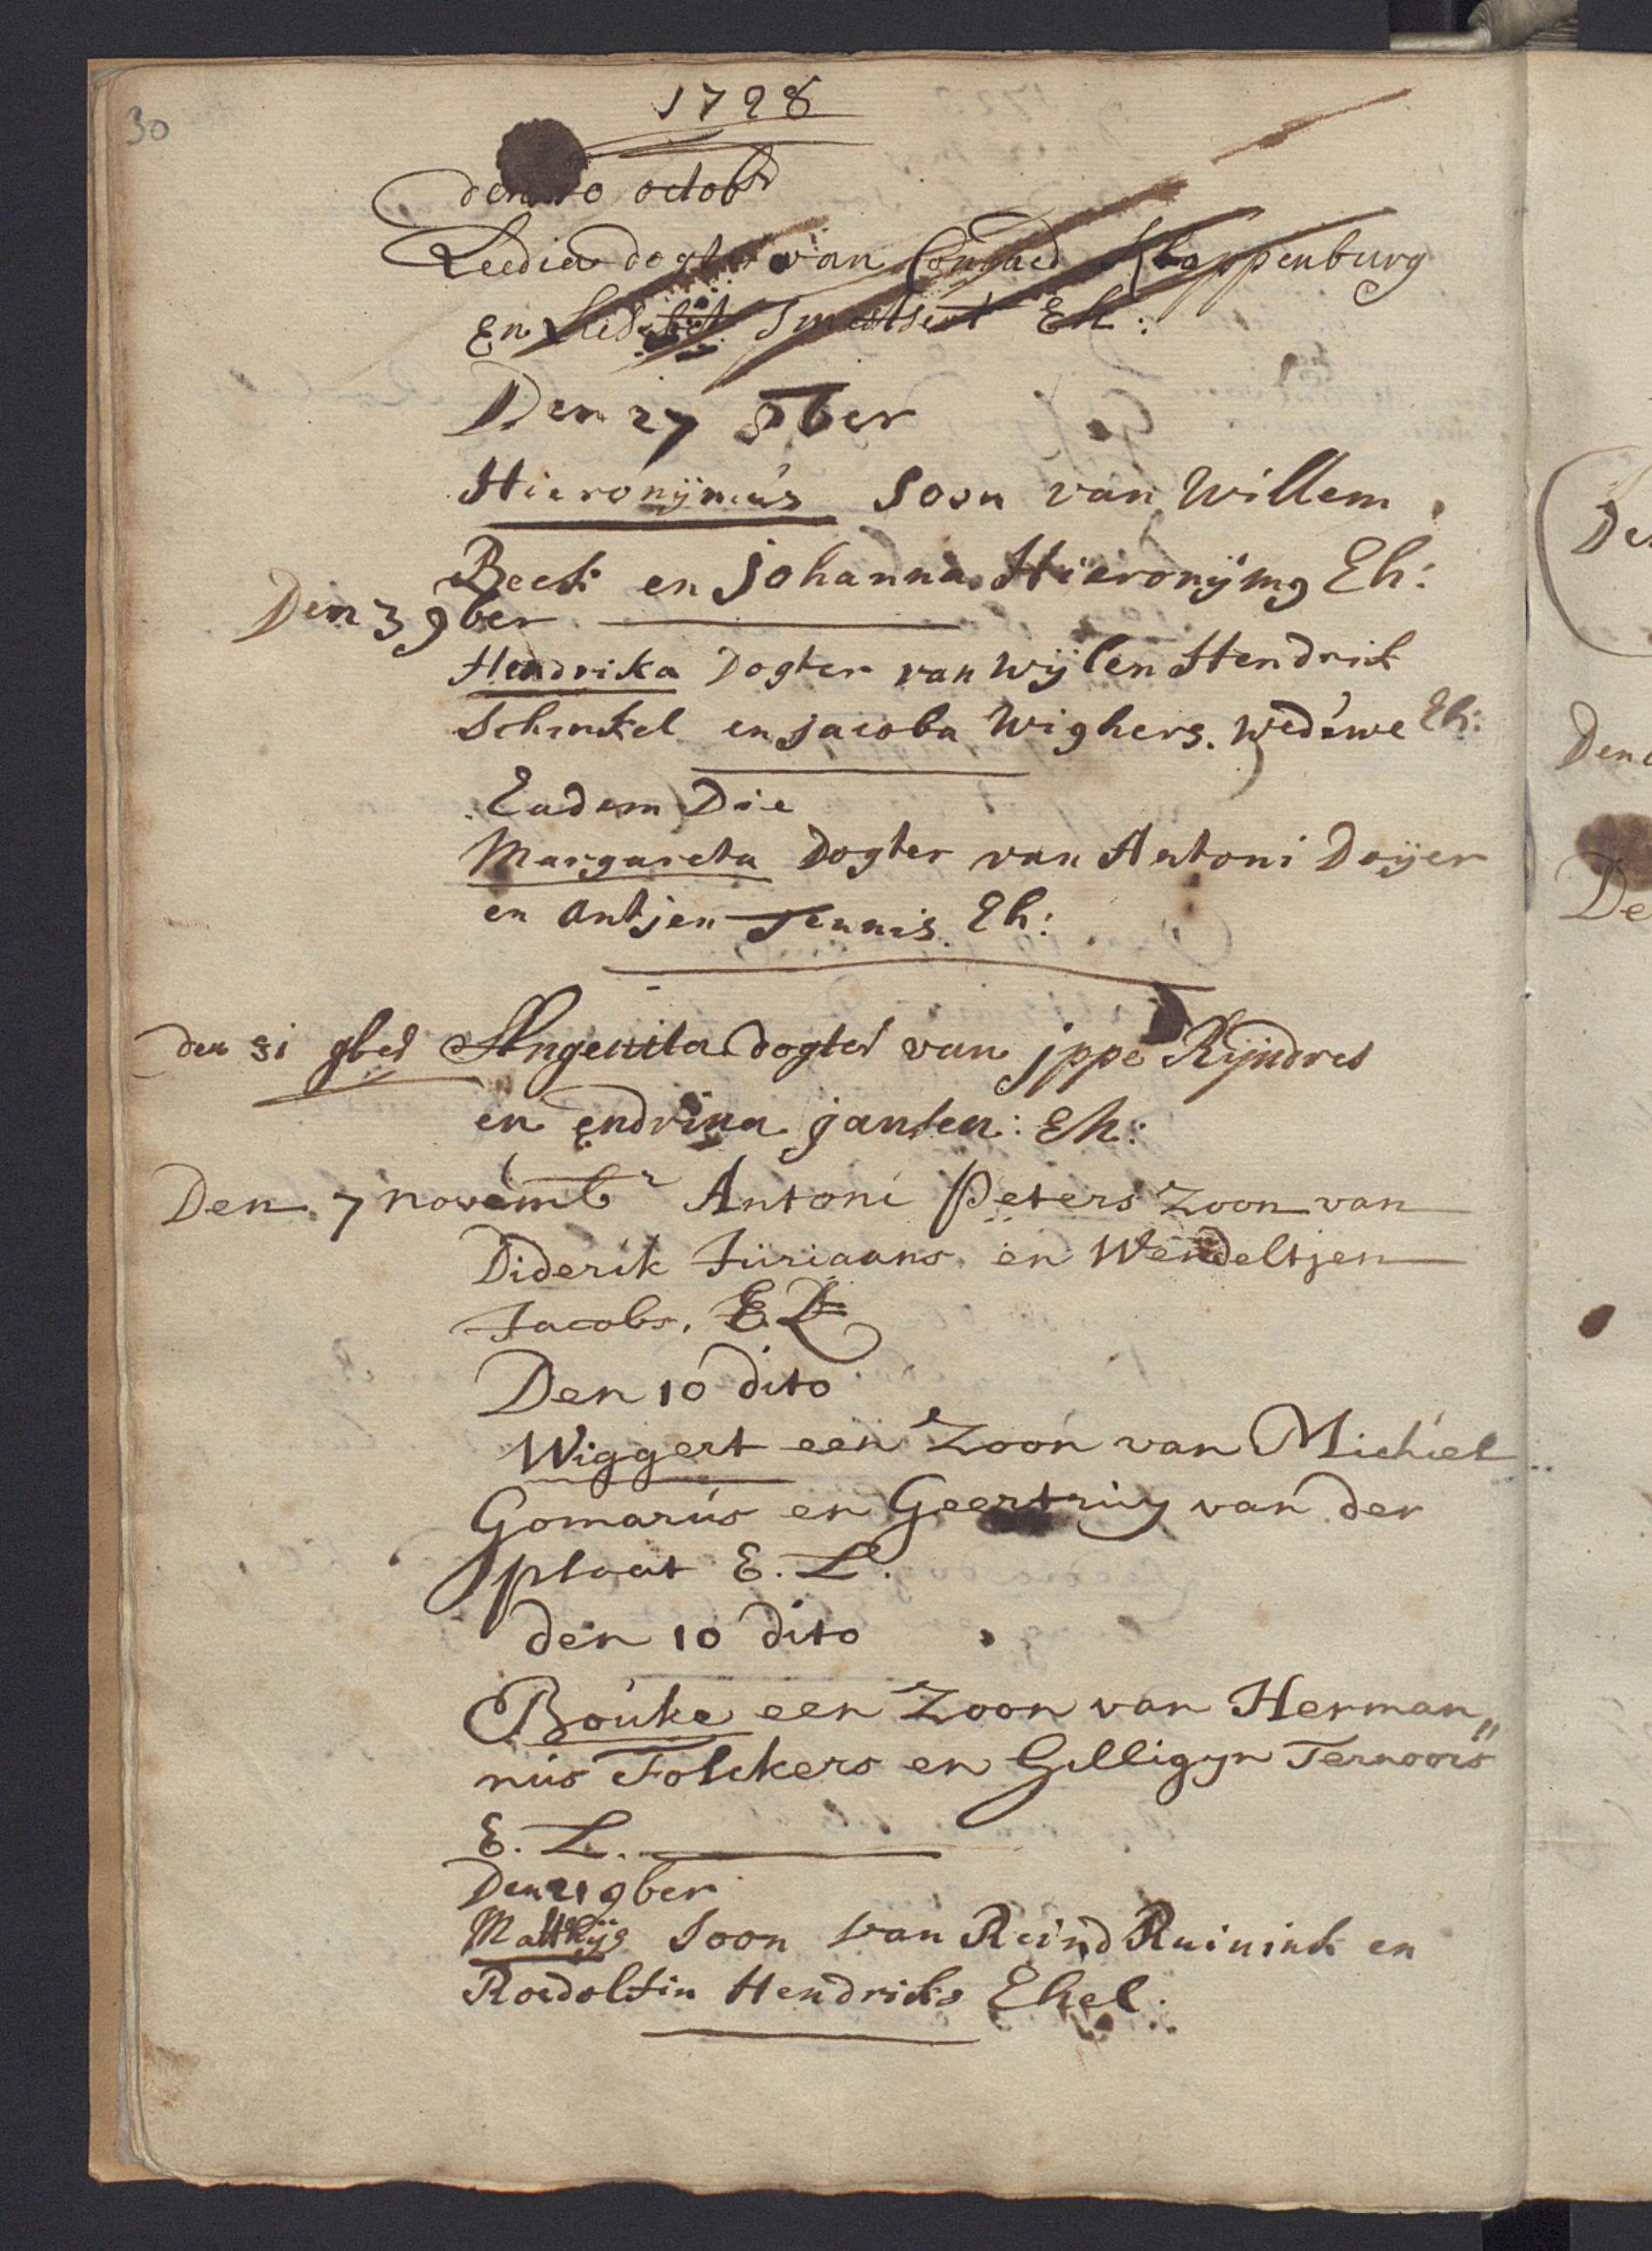 30
1728
den 10 octobr
Leedia dogter van Conraed Kloppenburg
en Eh:
Den 27 8ber
Hieronijmus Soon van Willem
Beek en Johanna Hieronijmg Eh:
Den 3 9ber
Hendrika Dogter van Wijlen Hendrik
Schinkel en Jacoba Wighers. Wedewe Eh:
Eadem Die
Margareta Dogter van Antoni Doijer
en Antjen Teunis. Eh:
den 31 gber Angenita dogter van jppe Rijndres
en endrina jansen: Eh:
Den 7 novembr Antoni Peters Zoon van
Diderik Juriaans en Wendeltjen
Jacobs. E.L.
Den 10 dito
Wiggert een Zoon van Michiel
Gomarus en Geertruy van der
plaat E. L.
den 10 dito
Bouke een Zoon van Herman„
nus Folckers en Gilligyn Ternoors
E. L.
Den 21 9ber
Matthijs Soon van Reind Ruinink en
Roedolfin Hendriks Ehel.
De
Den
De